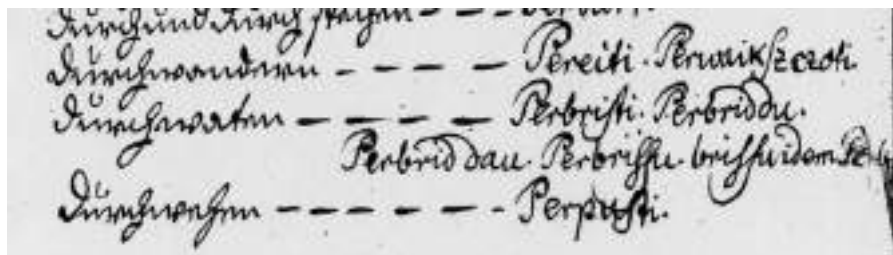 durchunddurch stechen
durchwandern – – – – Pereiti. Perwaikszczoti.
durchwaten – – – – – Perbristi. Perbriddu.
Perbriddau. Perbrissu. brissu idem
durchwehen – – – – – – Perpusti.